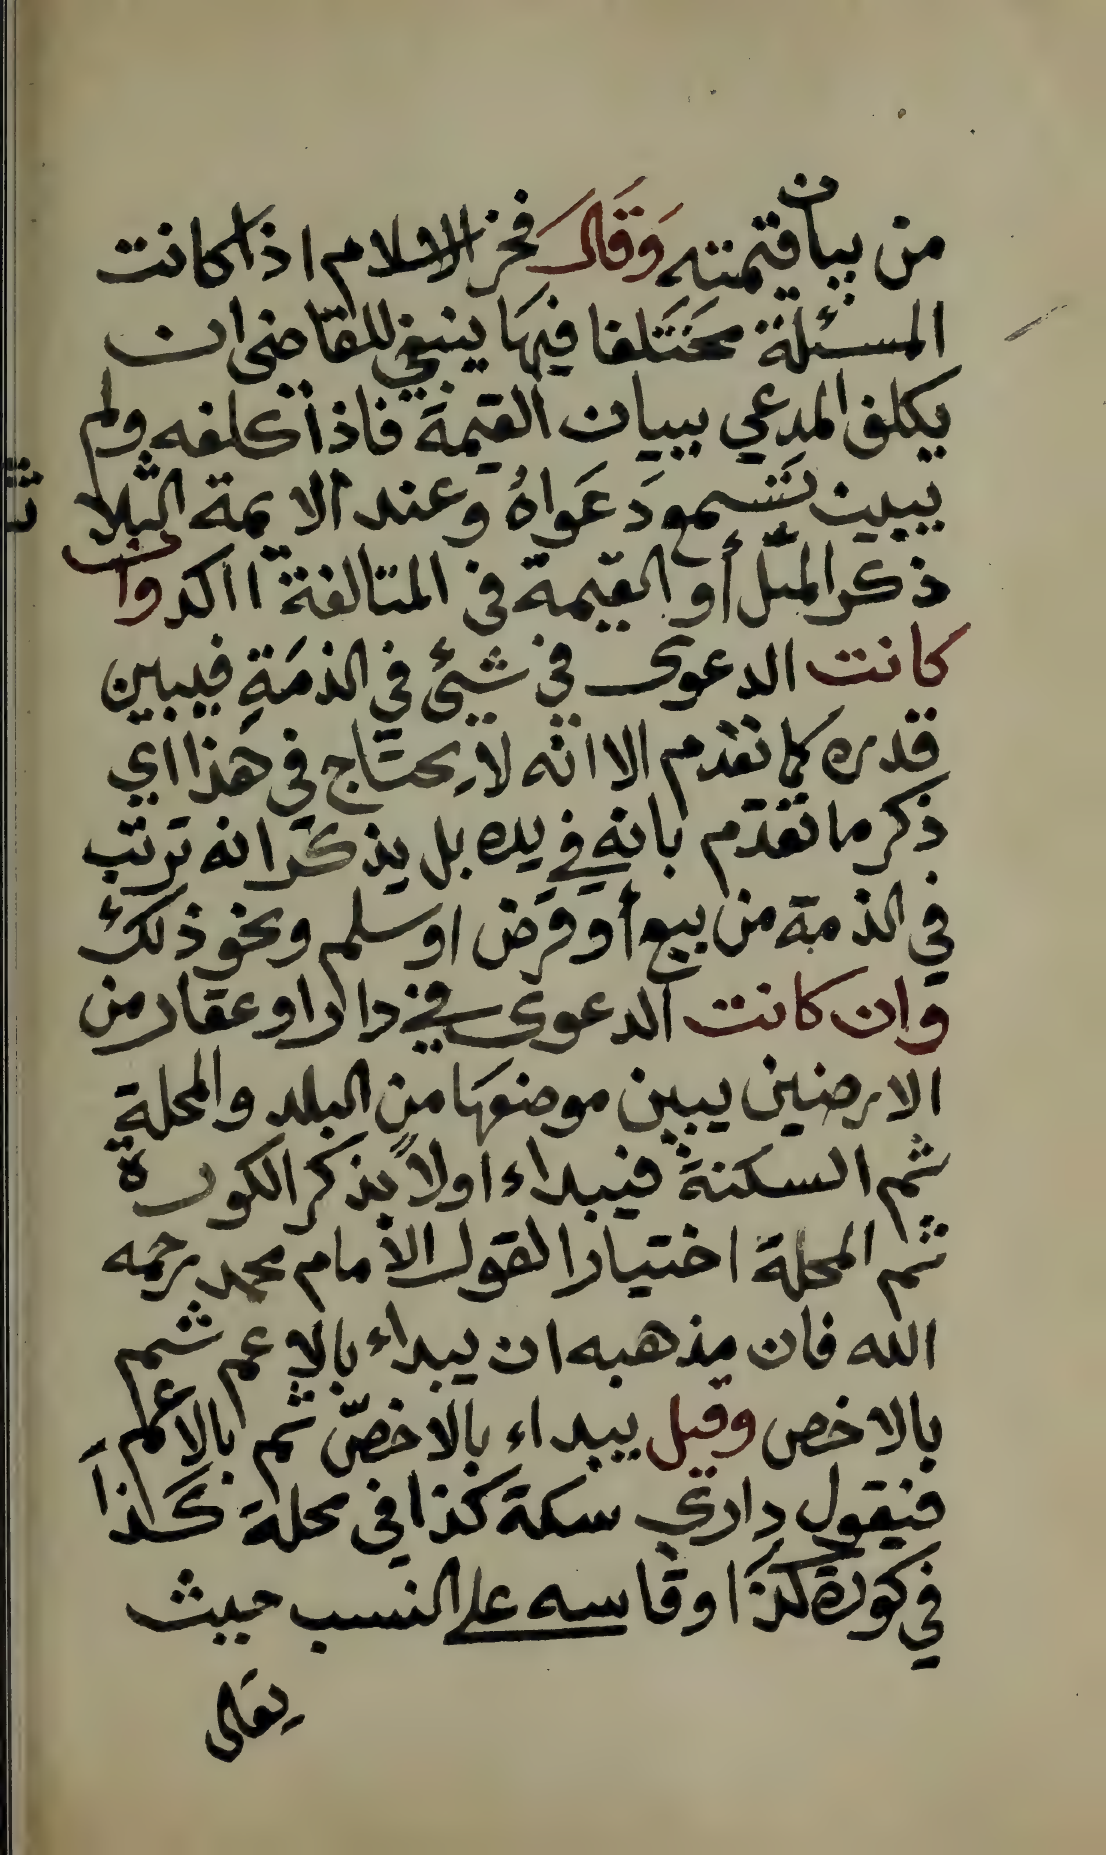 من بيان قيمته وَقَالَ فخر الاسلام اذا كانت
المسئلة مختَلفا فيهَا ينبغي للقاضى ان
يكلف المدعي ببيان القيمة فاذا كلفه ولم
يبين تسمع دَعَواهُ وعند الايمة الثلاث
ذكر المثل أو القيمة في المتالفة ااكد وان
كانت الدعوى في شيئ في الذمَةِ فيبين
قدره كما تقدم الا انه لا يحتاج في هَذا اي
ذكر ما تقدم بانه في يده بل يذكر انه ترتب
في الذمة من بيع أو قرض او سلم ونحو ذلك
وان كانت الدعوى في دار او عقار من
الارضين يبين موضعهَا من البلد والمحلة
ثم السكنة فيبداء اولاً بذكر الكورة
ثم المحلة اختيارا لقول الامام محمد رحمه
الله فان مذهبه ان يبداء بالاعم ثم
بالاخص وقيل يبداء بالاخصّ ثم بالاعم
فنيقول داري سكة كذا في محلة كَذاَ
في كورة كذَا وقاسه على النسب حيث
يقال